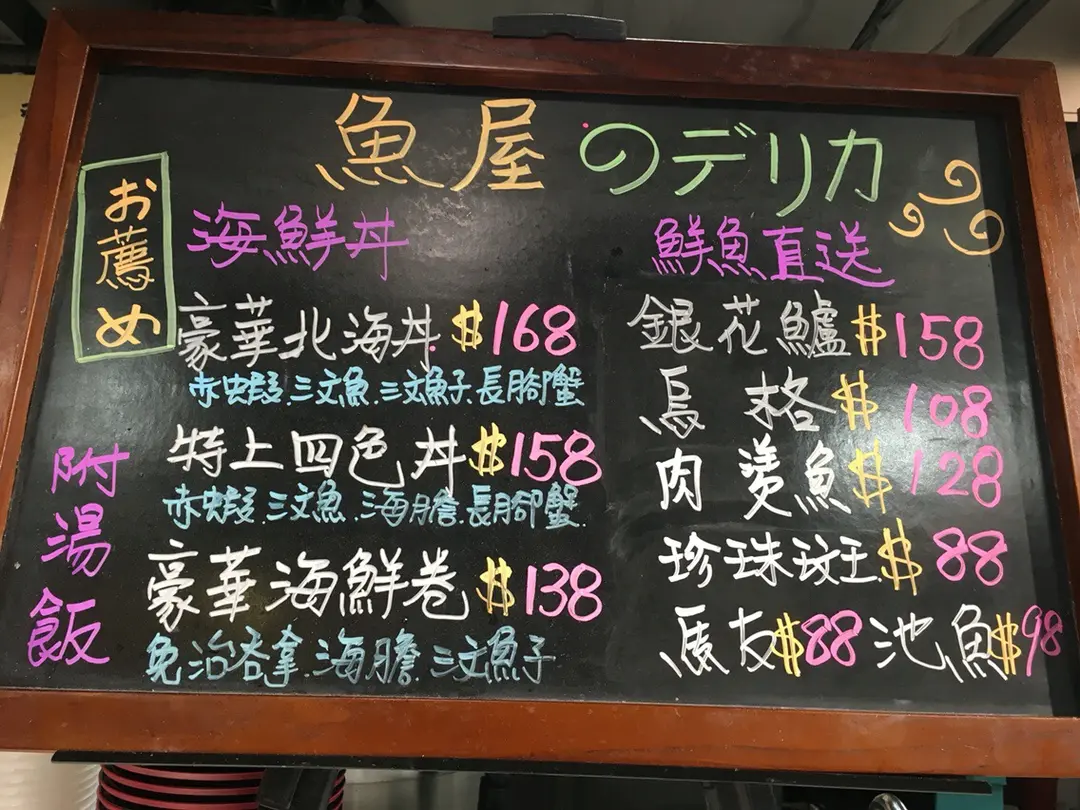 魚屋のデリカ
お薦め
海鮮丼
豪華北海丼 $168
赤蝦.三文魚.三文魚子.長腳蟹
特上四色丼 $158
赤蝦.三文魚.海膽.長腳蟹
豪華海鮮卷 $138
免治吞拿.海膽.三文魚子
附湯飯
鮮魚直送
銀花鱸 $158
烏格 $108
肉煲魚 $128
珍珠斑 $88
馬友 $88 池魚 $98